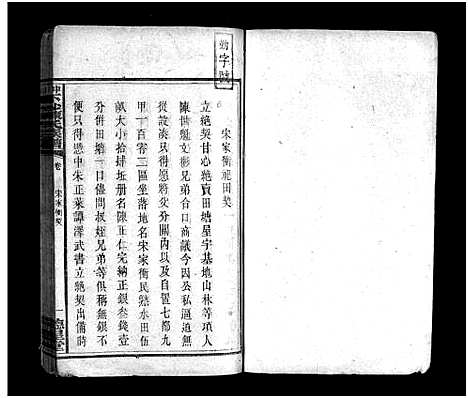 勤字號
宋家衝祀田契
立絶契甘心絶賣田塘屋宇基地山林等項人
陳世魁文彰兄弟合口商議今因公私逼迫無
從只得將父分關內以及自置七都九
甲一百零三區坐落地名宋家衝民熟水田伍
畝大小拾肆坵册名陳正仁完納正銀叁錢壹
分併田塘一口催問叔姪兄弟等俱稱無銀不
便只得懇中朱正萊譚澤武書立絶契出備時
卷
宋家衝契
一